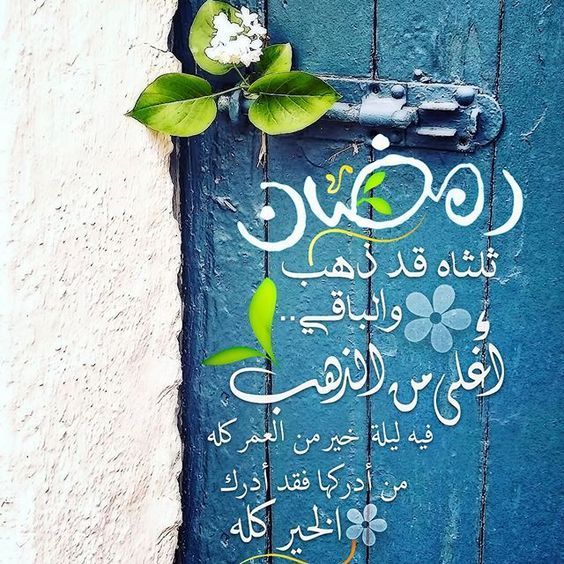 رمضان
ثلثاه قد ذهب
والباقي..
أغلى من الذهب
فيه ليلة خير من العمر كله
من أدركها فقد أدرك
الخير كله